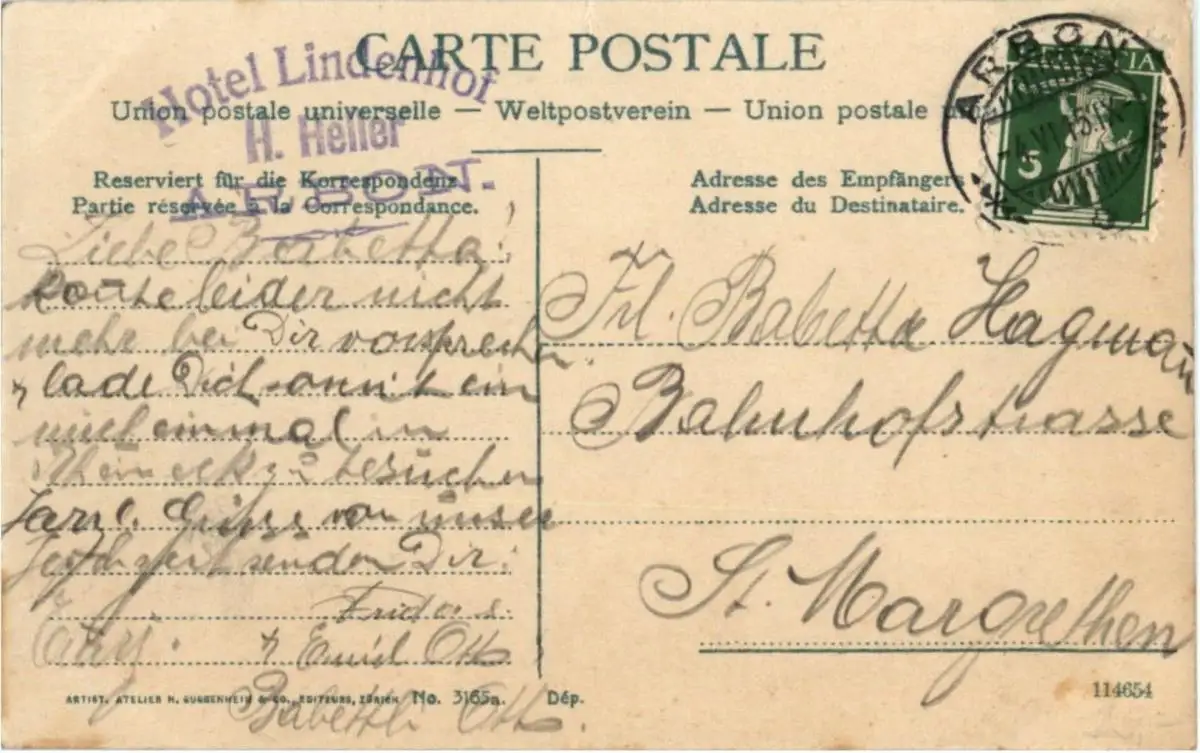 CARTE POSTALE
Hotel Lindenhof
H. Heller
ARBON.
Union postale universelle — Weltpostverein — Union postale
ARBON
-4.VI.15.IX-
HELVETIA
5
Reserviert für die Korrespondenz
Partie réservée à la Correspondance.
Adresse des Empfängers
Adresse du Destinataire.
Liebe Babetta!
konnte leider nicht
mehr bei Dir vorsprechen
lade Dich somit ein
mich einmal in
Rheineck zu besuchen
Grüsse von unser
senden Dir.
Frida
& Emil Ott
Babettli Ott.
Frl. Babetta Hagmann
Bahnhofstrasse
St. Margrethen
ARTIST. ATELIER H. GUGGENHEIM & CO., EDITEURS, ZÜRICH No. 3165a. Dép.
114654